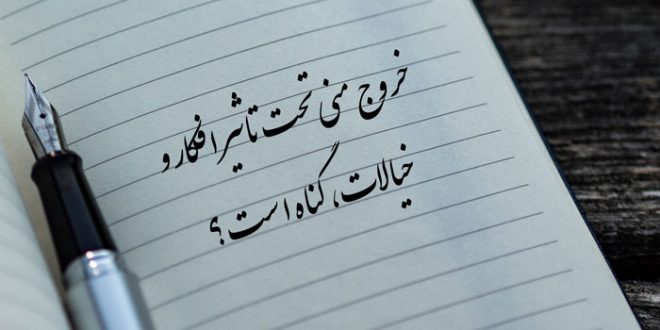 خروج منی تحت تاثیر افکار و
خیالات، گناه است؟